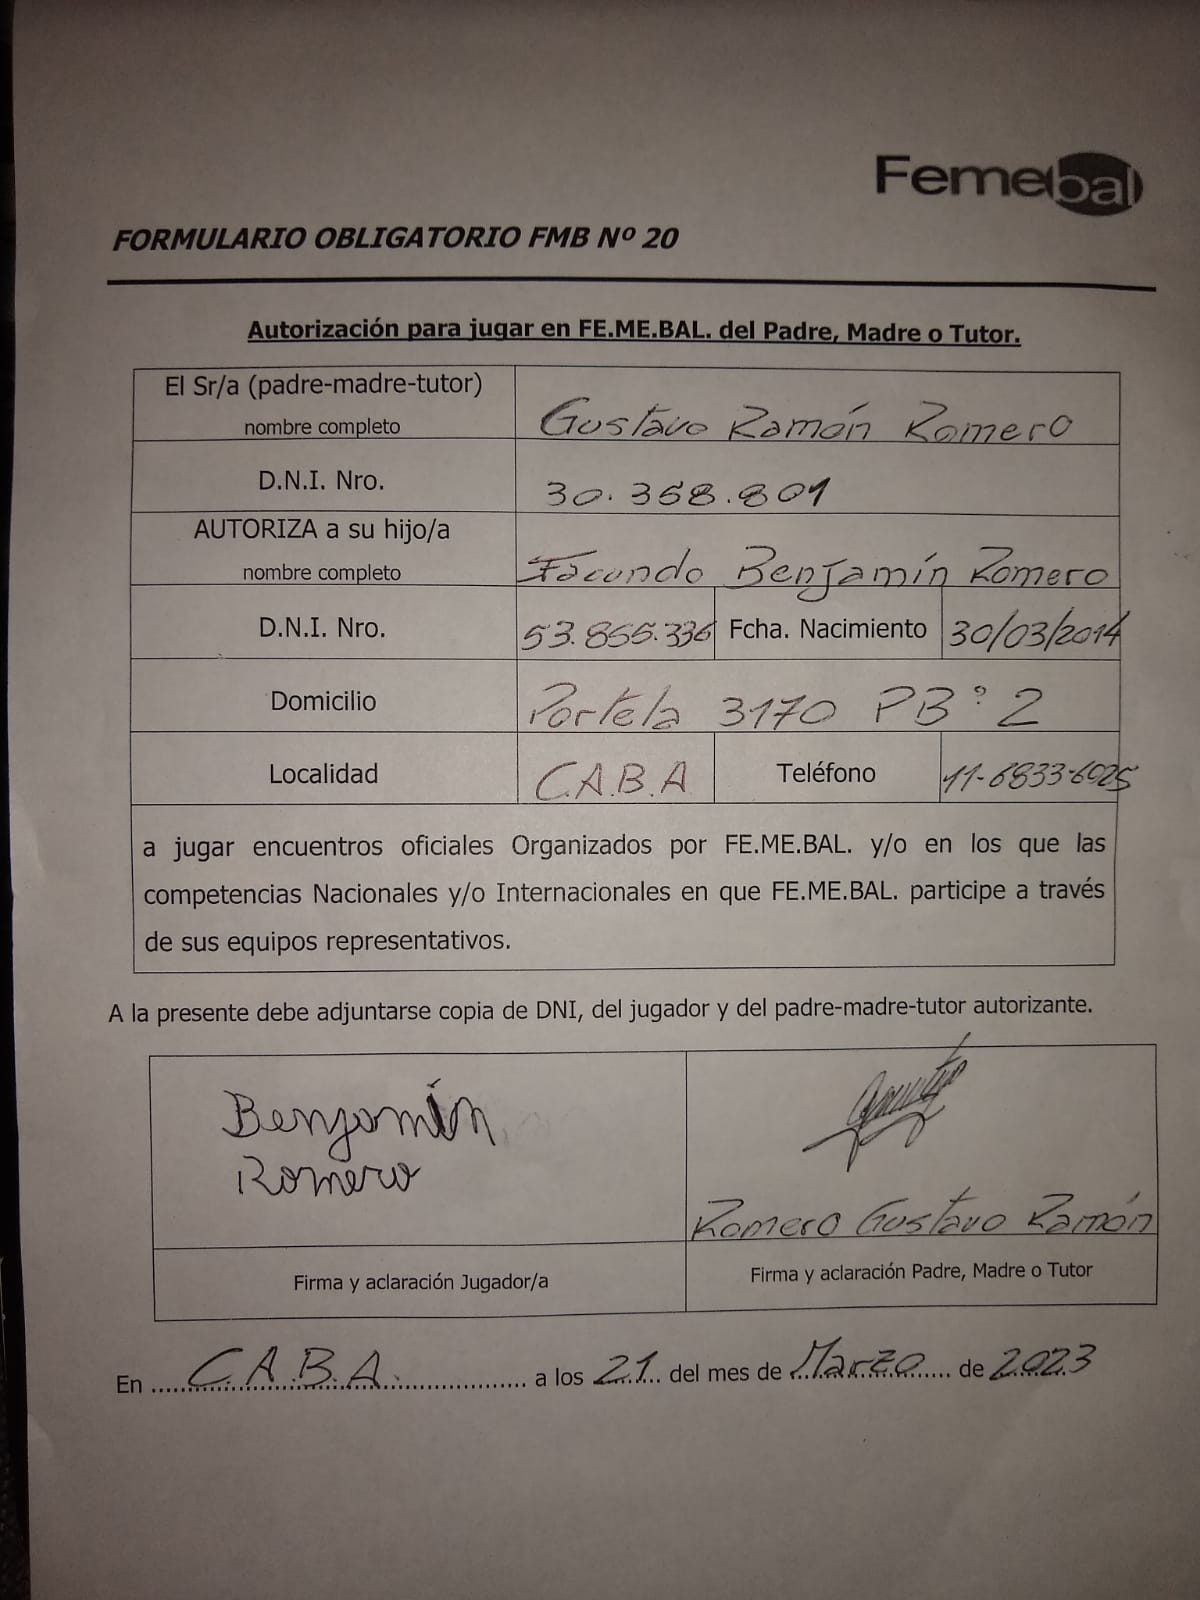 Femebal
FORMULARIO OBLIGATORIO FMB Nº 20
Autorización para jugar en FE.ME.BAL. del Padre, Madre o Tutor.
El Sr/a (padre-madre-tutor)
nombre completo
Gustavo Ramón Romero
D.N.I. Nro.
30.368.801
AUTORIZA a su hijo/a
nombre completo
Facundo Benjamín Romero
D.N.I. Nro. 53.855.336 Fcha. Nacimiento 30/03/2014
Domicilio Portela 3170 PB° 2
Localidad C.A.B.A Teléfono 11-6833-6025
a jugar encuentros oficiales Organizados por FE.ME.BAL. y/o en los que las
competencias Nacionales y/o Internacionales en que FE.ME.BAL. participe a través
de sus equipos representativos.
A la presente debe adjuntarse copia de DNI, del jugador y del padre-madre-tutor autorizante.
Benjamín
Romero
Romero Gustavo Ramón
Firma y aclaración Jugador/a
Firma y aclaración Padre, Madre o Tutor
En C.A.B.A. a los 21 del mes de Marzo de 2023